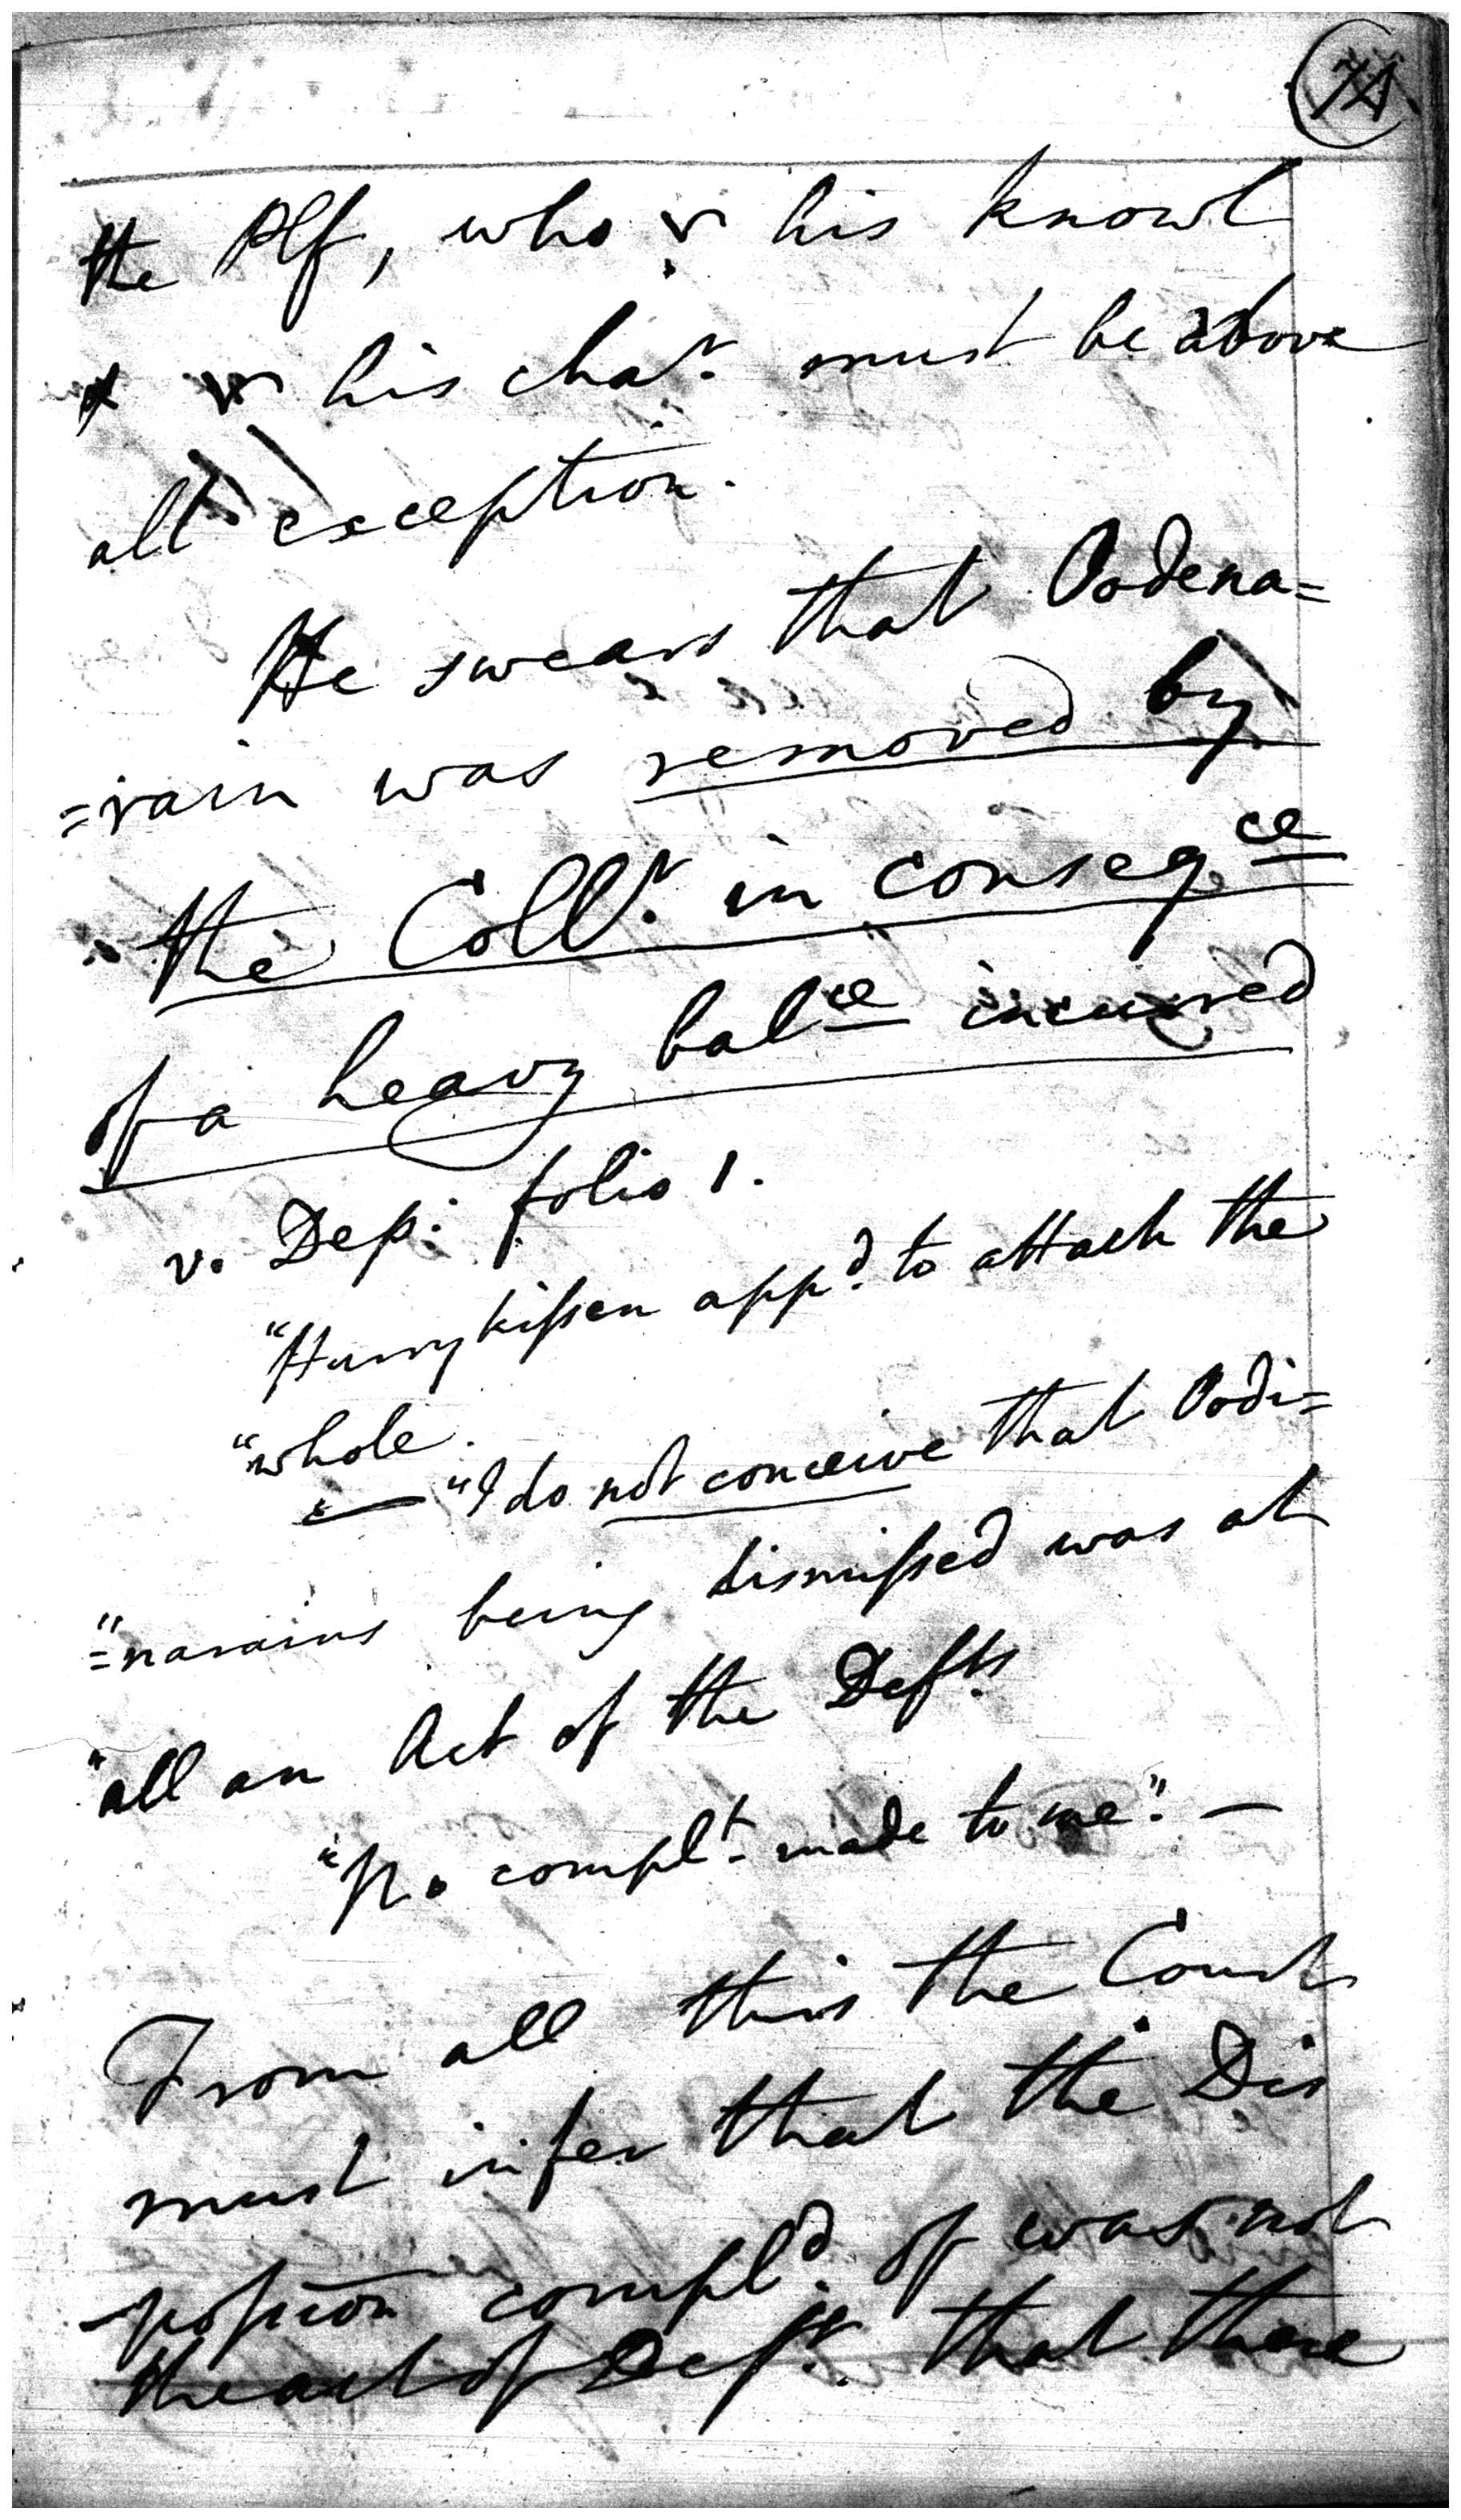 74
the Plf, who fr his knowl
& fr his char. must be above
all exception.
He swears that Oodena=
=rain was removed by
the Collr. in conseqce
of a heavy balce incurred
v. Dep: folio 1.
"Hurrykissen appd. to attach the
"whole.
"— "I do not conceive that Oodi=
"=narains being dismissed was at
"all an Act of the Defts
"No complt. made to me". —
From all this the Court
must infer that the Dis
-possion compld. of was not
the act of Deft. that there